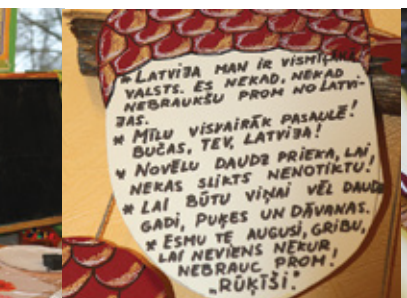 * LATVIJA MAN IR VISMĪĻĀKĀ
VALSTS. ES NEKAD, NEKAD
NEBRAUKŠU PROM NO LATVI-
JAS.
* MĪLU VISVAIRĀK PASAULĒ!
BUČAS, TEV, LATVIJA!
* NOVĒLU DAUDZ PRIEKA, LAI
NEKAS SLIKTS NENOTIKTU!
* LAI BŪTU VIŅAI VĒL DAUDZ
GADI, PUĶES UN DĀVANAS.
* ESMU TE AUGUSI, GRIBU,
LAI NEVIENS NEKUR
NEBRAUC PROM!
"RŪĶĪŠI".